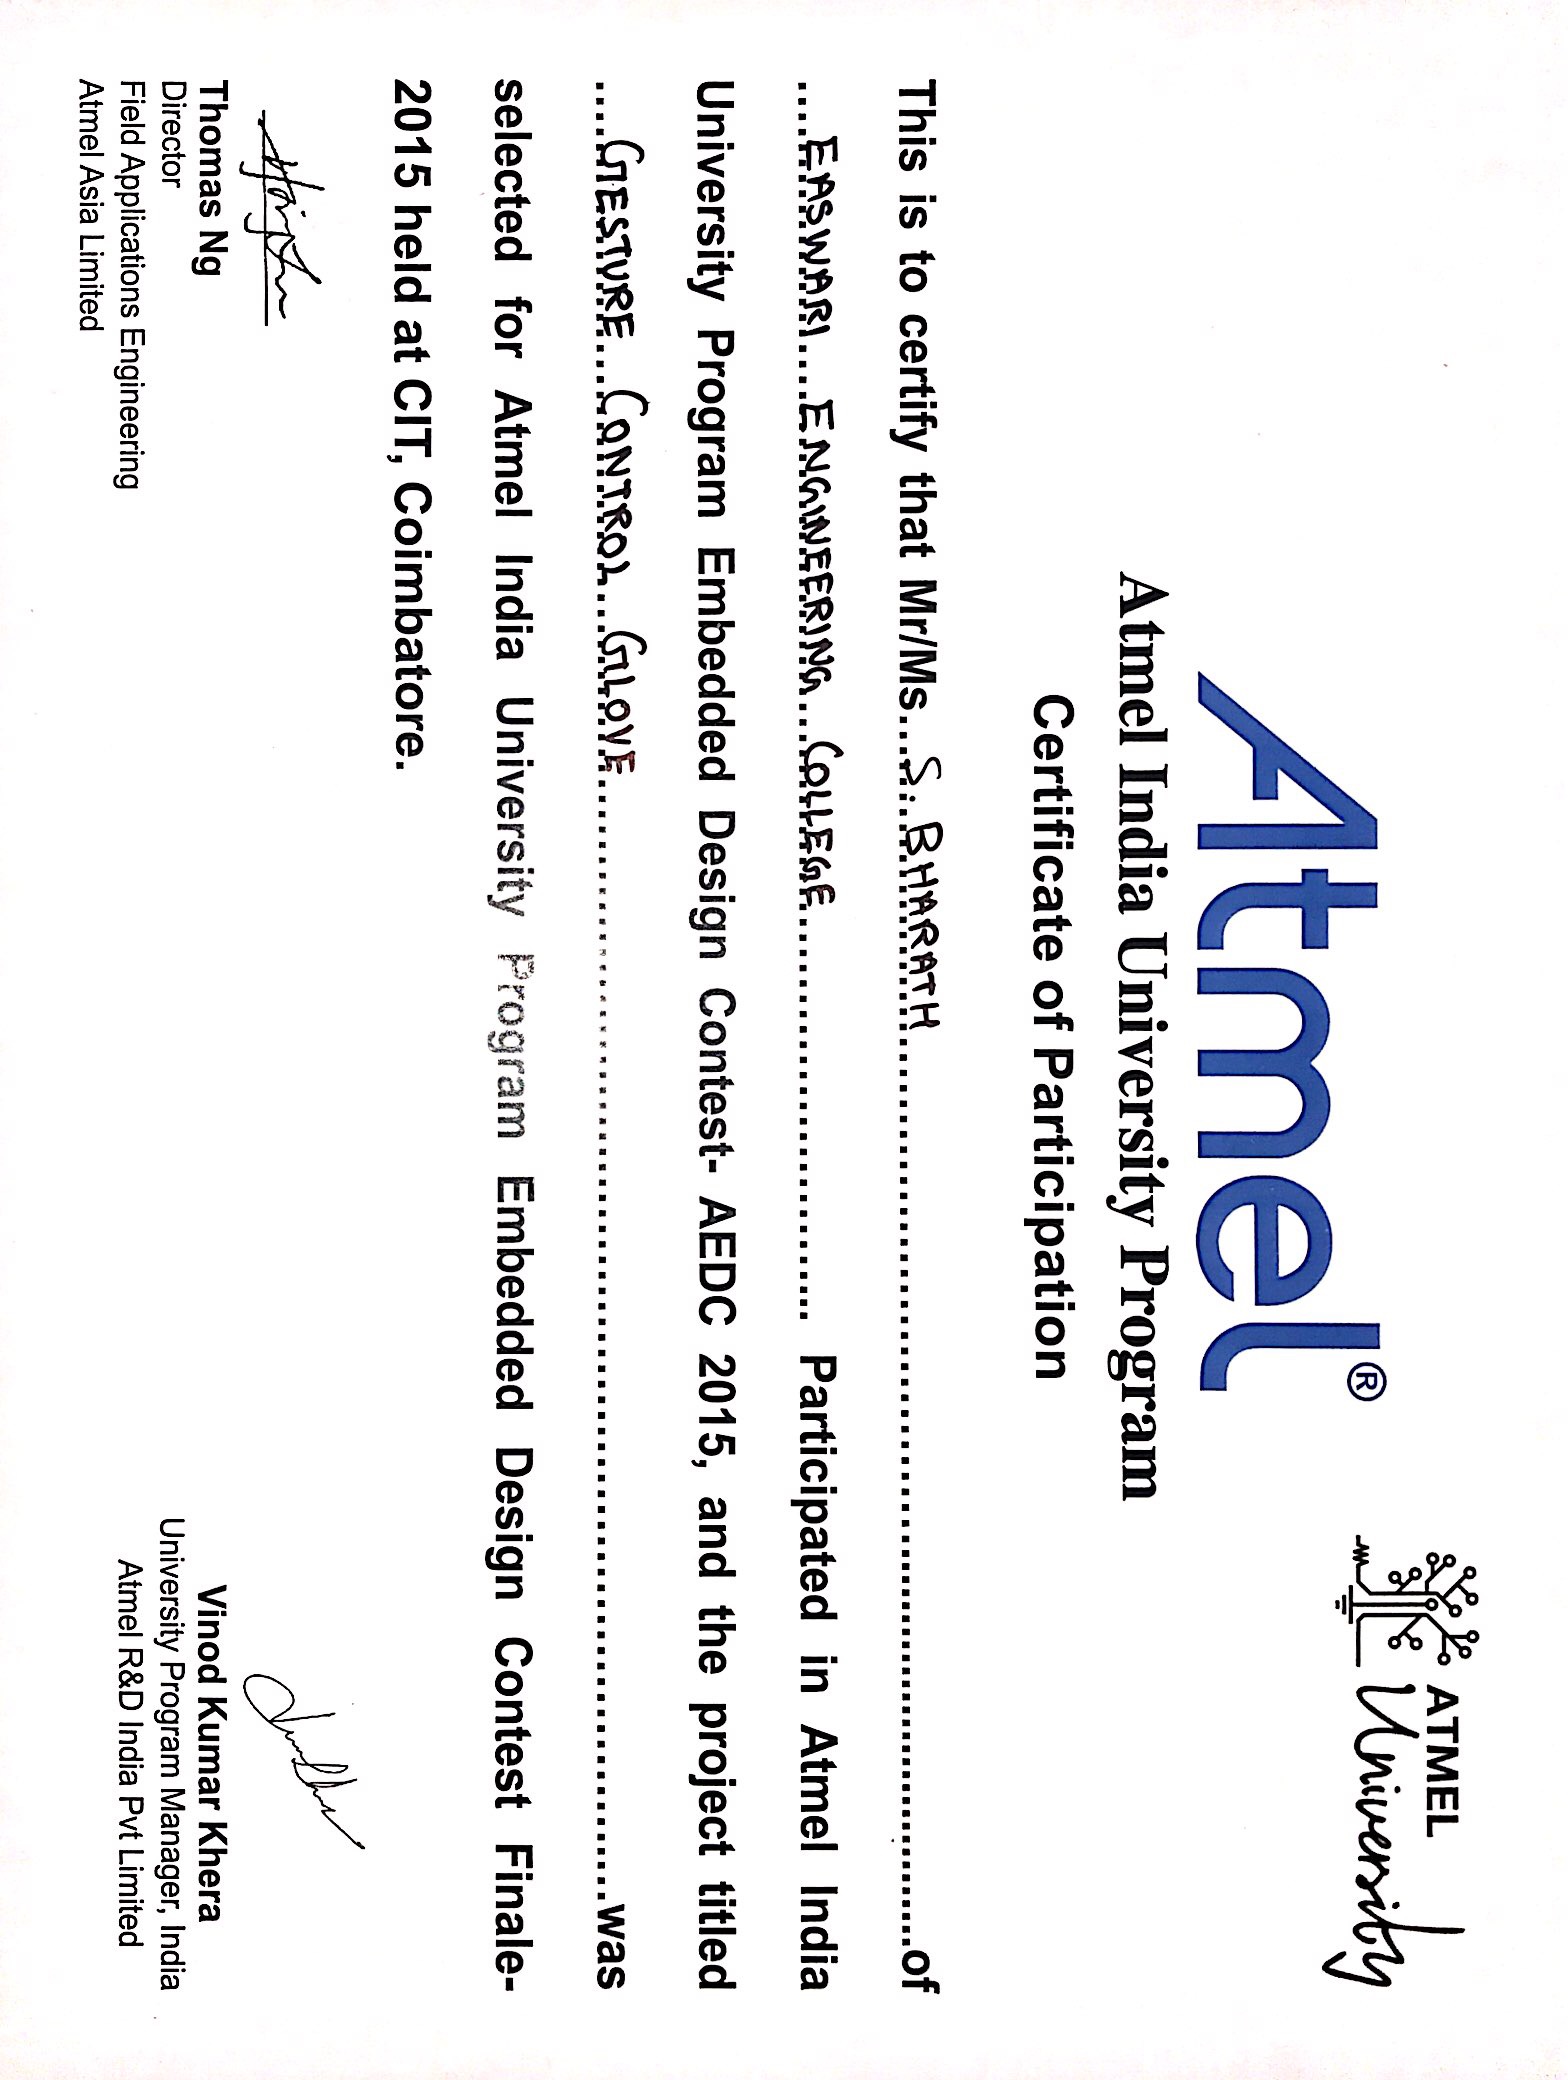 ATMEL
University
Atmel®
Atmel India University Program
Certificate of Participation
This is to certify that Mr/Ms...S. BHARATH...of
....EASWARI....ENGINEERING...COLLEGE... Participated in Atmel India
University Program Embedded Design Contest- AEDC 2015, and the project titled
....GESTURE...CONTROL...GLOVE...was
selected for Atmel India University Program Embedded Design Contest Finale-
2015 held at CIT, Coimbatore.
Thomas Ng
Director
Field Applications Engineering
Atmel Asia Limited
Vinod Kumar Khera
University Program Manager, India
Atmel R&D India Pvt Limited